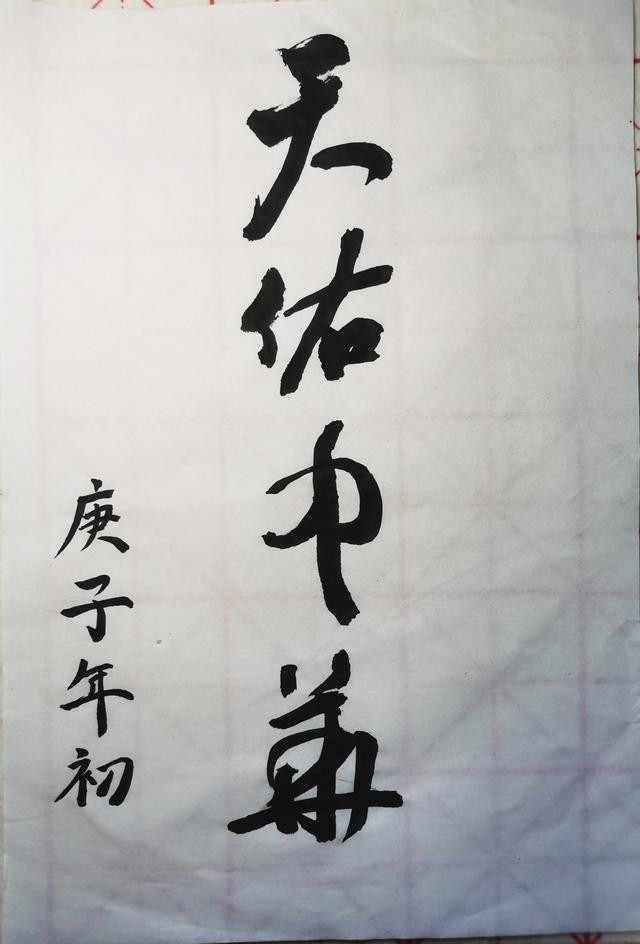 天佑中華
庚子年初